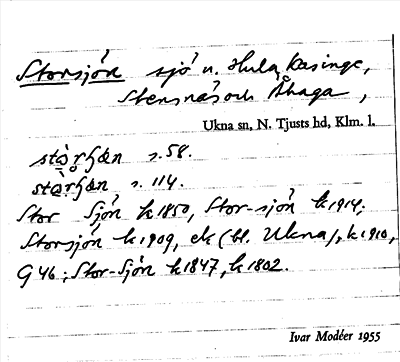 Storsjön sjö u. Hula, Kasinge,
Stensnäs och Åhaga,
Ukna sn, N. Tjusts hd, Klm. l.
s. 58.
s. 114.
Stor Sjön k 1850, Stor-sjön k 1914;
Storsjön k 1909, ek (bl. Ukna), k 1910,
G 46; Stor-Sjön k 1847, k 1802.
Ivar Modéer 1955